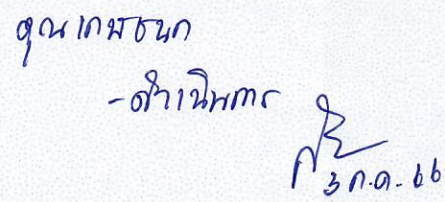 คุณเกษชนก
-ดำเนินการ
3 ก.ค. 66